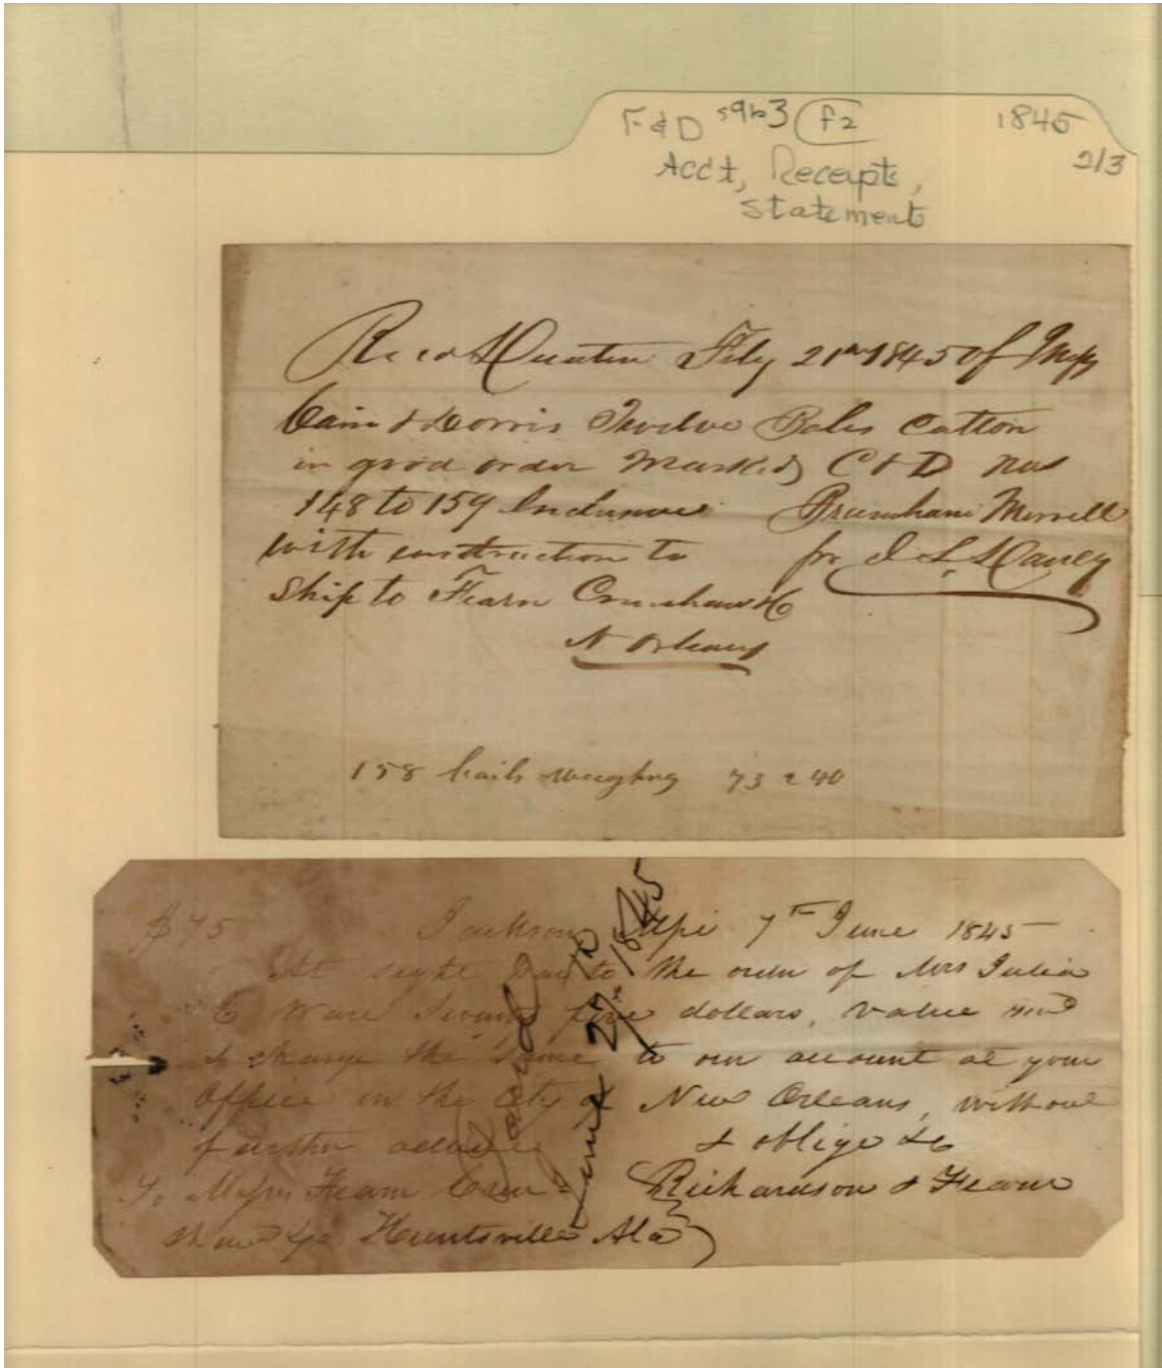 F&D s9b3 f2 1845
2/3
Acct, Receipts,
Statements
Recd Feby 21st 1845 of Messrs
& Twelve Bales Cotton
in good order Marked C & D Nos
148 to 159 Inclusive
with instruction to for
Ship to Fearn Crenshaw & Co
N Orleans
158 bails weighing 73 2 40
$75 Jackson Mpi 7th June 1845
At sight pay to the order of Mrs Julia
C Ware Seventy five dollars, value recd
& charge the same to our account at your
Office in the City of New Orleans, without
further advice & oblige &c
To Messrs Fearn Cren Richardson & Fearn
shaw & Co Huntsville Ala
June 27th 1845